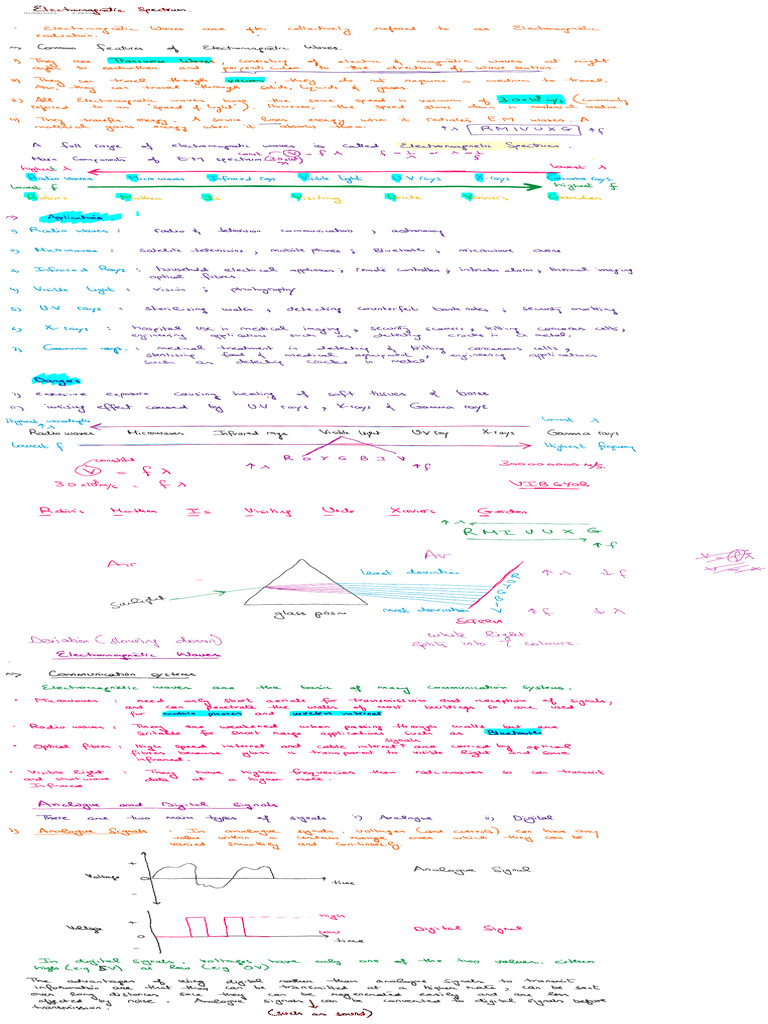 Electromagnetic Spectrum.
· Electromagnetic Waves are often collectively referred to as Electromagnetic
radiation.
~> Common features of Electromagnetic Waves.
1) They are Transverse Waves, consisting of electric & magnetic waves at right
angle to each other and perpendicular to the direction of wave motion.
2) They can travel through vacuum, they do not require a medium to travel.
Also, they can travel through solids, liquids & gases.
3) All Electromagnetic waves have the same speed in vacuum of 3.0×10⁸ m/s (Commonly
referred to as "speed of light"). However, the speed slows down in material matter
4) They transfer energy. A source loses energy when it radiates E·M waves. A
material gains energy when it absorbs them.
↑ λ R M I V U X G ↑ f
A full range of electromagnetic waves is called Electromagnetic Spectrum.
Main Components of E·M spectrum
highest λ lowest λ
Radio waves Microwaves Infrared rays Visible light U·V rays X-rays Gamma rays.
lowest f highest f
Robins Mothen Is Visiting Uncle Xavier's Garden
~> Applications
1) Radio waves : radio & television communication ; astronomy
2) Microwaves : satelite televisions, mobile phones ; Bluetooth ; microwave ovens
3) Infrared Rays : household electrical appliances ; remote controller ; intruder alarm ; thermal imaging
optical fibres
4) Visible light : Vision ; photography
5) U·V rays : sterilising water ; detecting counterfeit bank notes ; security marking
6) X-rays : hospital use in medical imaging ; security scanners, killing cancerous cells,
engineering applications such as detecting cracks in metal.
7) Gamma rays. : medical treatment in detecting & killing cancerous cells,
sterilising food & medical equipment, engineering applications
such as detecting cracks in metal
Dangers
i) excessive exposure causing heating of soft tissues & bones
ii) ionising effect caused by U·V rays, X-rays & Gamma rays
Highest wavelength lowest λ
Radio waves Microwaves Infrared rays Visible light UV ray X-rays Gamma rays
lowest f Highest frequency
↑ λ R O Y G B I V ↑ f
constant
V = f λ
3.0 × 10⁸ m/s = f λ
300000000 m/s.
VIBGYOR
Robin's Mothen Is Visiting Uncle Xavier's Garden
↑ λ
R M I V U X G
↑ f
Air Air
least deviation
sunlight
glass prism
most deviation
Screen
R O Y G B I V
↑ λ ↓ f
↑ f ↓ λ
White light
splits into 7 colours.
Deviation (slowing down)
Electromagnetic Waves
~> Communication systems
Electromagnetic waves are the basis of many communication systems.
· Microwaves : need only short aerials for transmission and reception of signals,
and can penetrate the walls of most buildings so are used
for mobile phones and wireless internet
· Radio waves : They are weakened when passing through walls but are
suitable for short range applications such as Bluetooth
signals
· Optical fibres : High speed internet and cable internet are carried by optical
fibres because glass is transparent to visible light and some
infrared.
· Visible light : They have higher frequencies than radiowaves so can transmit
and shortwave data at a higher rate.
Infrared
Analogue and Digital Signals
There are two main types of signals i) Analogue ii) Digital
i) Analogue Signals : In analogue signals, voltages (and currents) can have any
value within a certain range over which they can be
varied smoothly and continously.
+
Voltage 0
-
time
Analogue Signal
+
Voltage 0
-
High
Low
time
Digital Signal
In digital signals, voltages have only one of the two values. Either
high (e.g 5V) or low (e.g 0V)
The advantages of using digital rather than analogue signals to transmit
information are that they can be transmitted at a higher rate, can be sent
over long distances since they can be regenerated easily and are less
affected by noise. Analogue signals can be converted to digital signals before
transmission.
(such as sound)